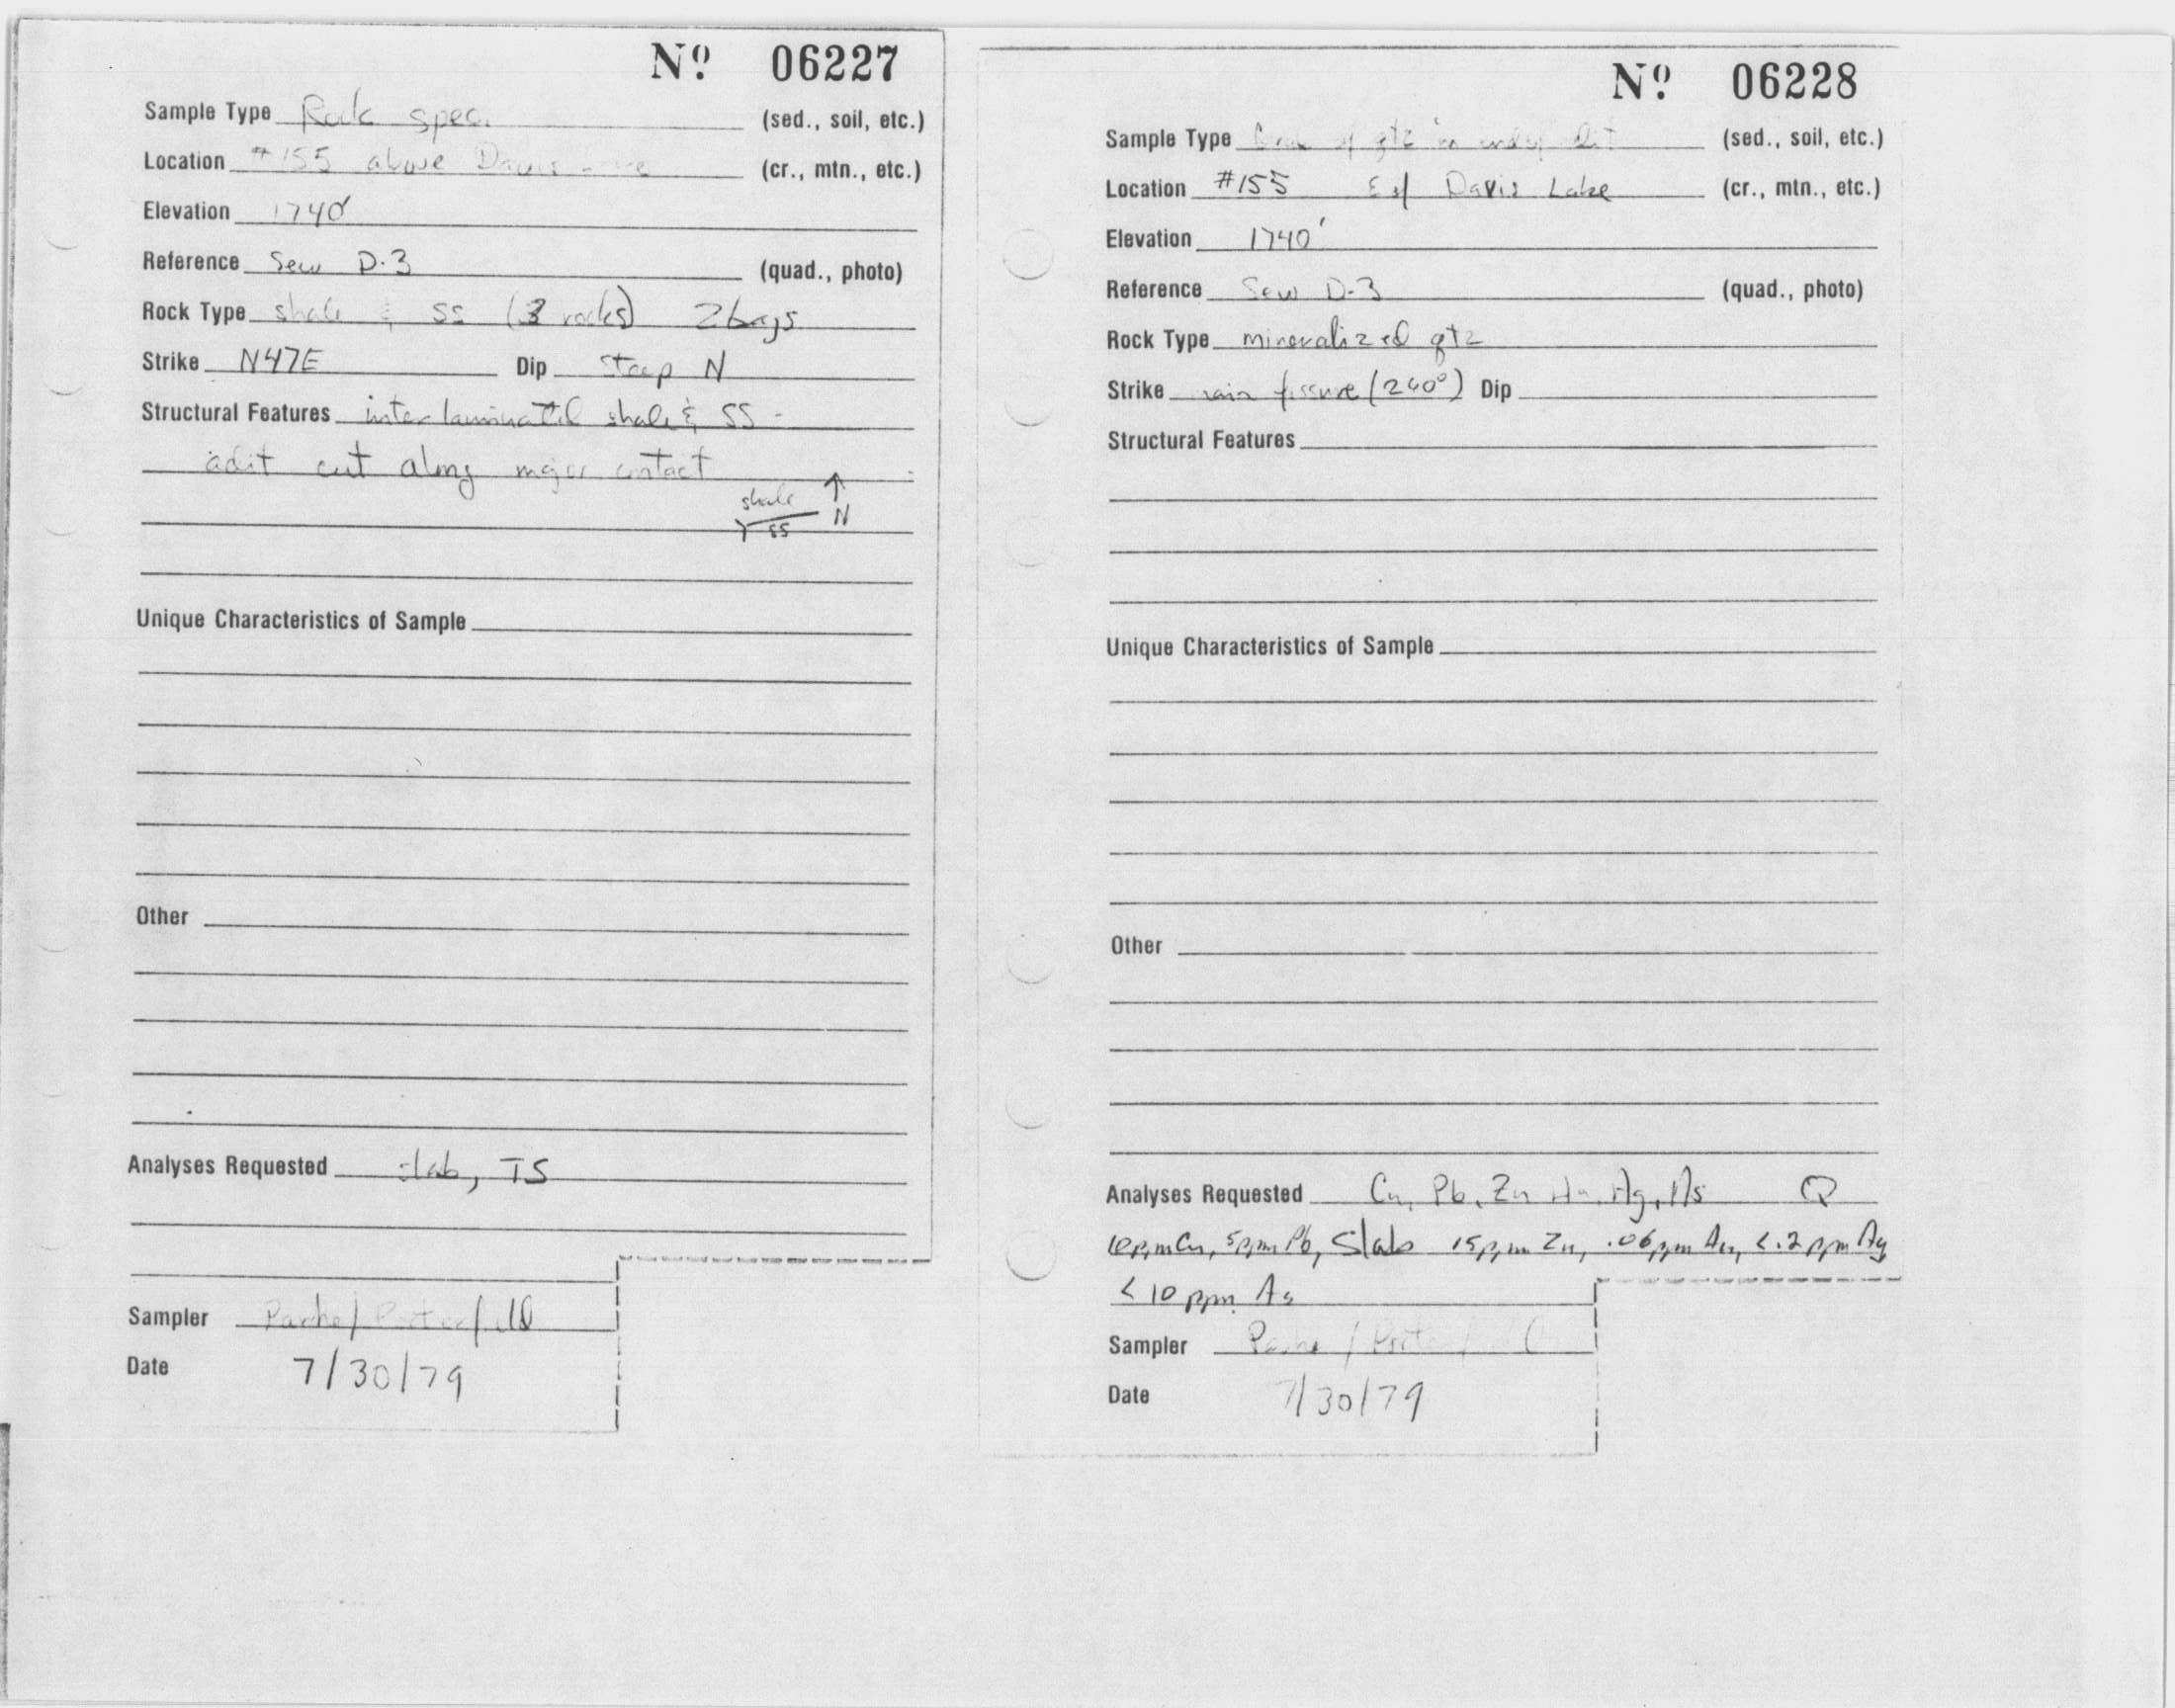 Nº 06227
Sample Type Rock spec. (sed., soil, etc.)
Location #155 above Davis (cr., mtn., etc.)
Elevation 1740'
Reference Sew D-3 (quad., photo)
Rock Type shale & SS (3 rocks) 2 bags
Strike N47E Dip steep N
Structural Features interlaminated shale & SS -
adit cut along major contact
shale ↑
SS N
Unique Characteristics of Sample
Other
Analyses Requested slab, TS
Sampler Porterfield
Date 7/30/79
Nº 06228
Sample Type of qtz in (sed., soil, etc.)
Location #155 E of Davis Lake (cr., mtn., etc.)
Elevation 1740'
Reference Sew D-3 (quad., photo)
Rock Type mineralized qtz
Strike main fissure (240°) Dip
Structural Features
Unique Characteristics of Sample
Other
Analyses Requested Cu, Pb, Zn, Au, Ag, As Q
10ppm Cu, 5ppm Pb, Slab 15ppm Zn, .06ppm Au, <.2 ppm Ag
<10 ppm As
Sampler
Date 7/30/79